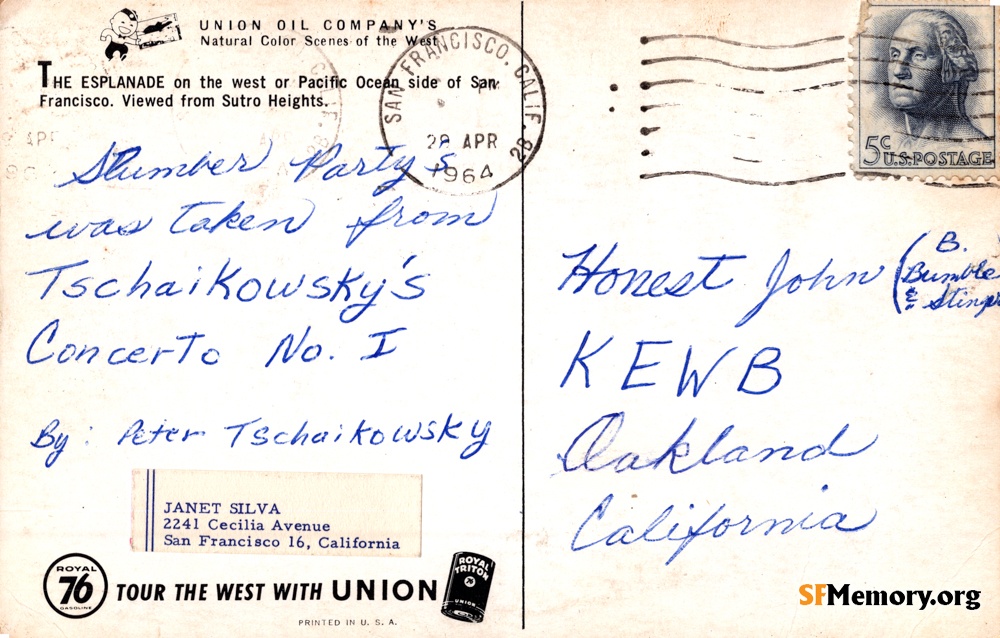 UNION OIL COMPANY'S
Natural Color Scenes of the West
THE ESPLANADE on the west or Pacific Ocean side of San
Francisco. Viewed from Sutro Heights.
SAN FRANCISCO, CALIF. 28
PM
28 APR
1964
5c
U.S. POSTAGE
Slumber Party's
was taken from
Tschaikowsky's
Concerto No. I
By: Peter Tschaikowsky
JANET SILVA
2241 Cecilia Avenue
San Francisco 16, California
ROYAL
76
GASOLINE
TOUR THE WEST WITH UNION
ROYAL
TRITON
76
UNION
PRINTED IN U. S. A.
Honest John (B.
Bumble
&
KEWB
Oakland
California
SFMemory.org